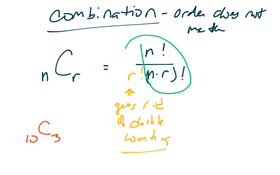 combination - order does not
matter
nCr = n!
r!(n-r)!
gets rid
of double
counting
10C3